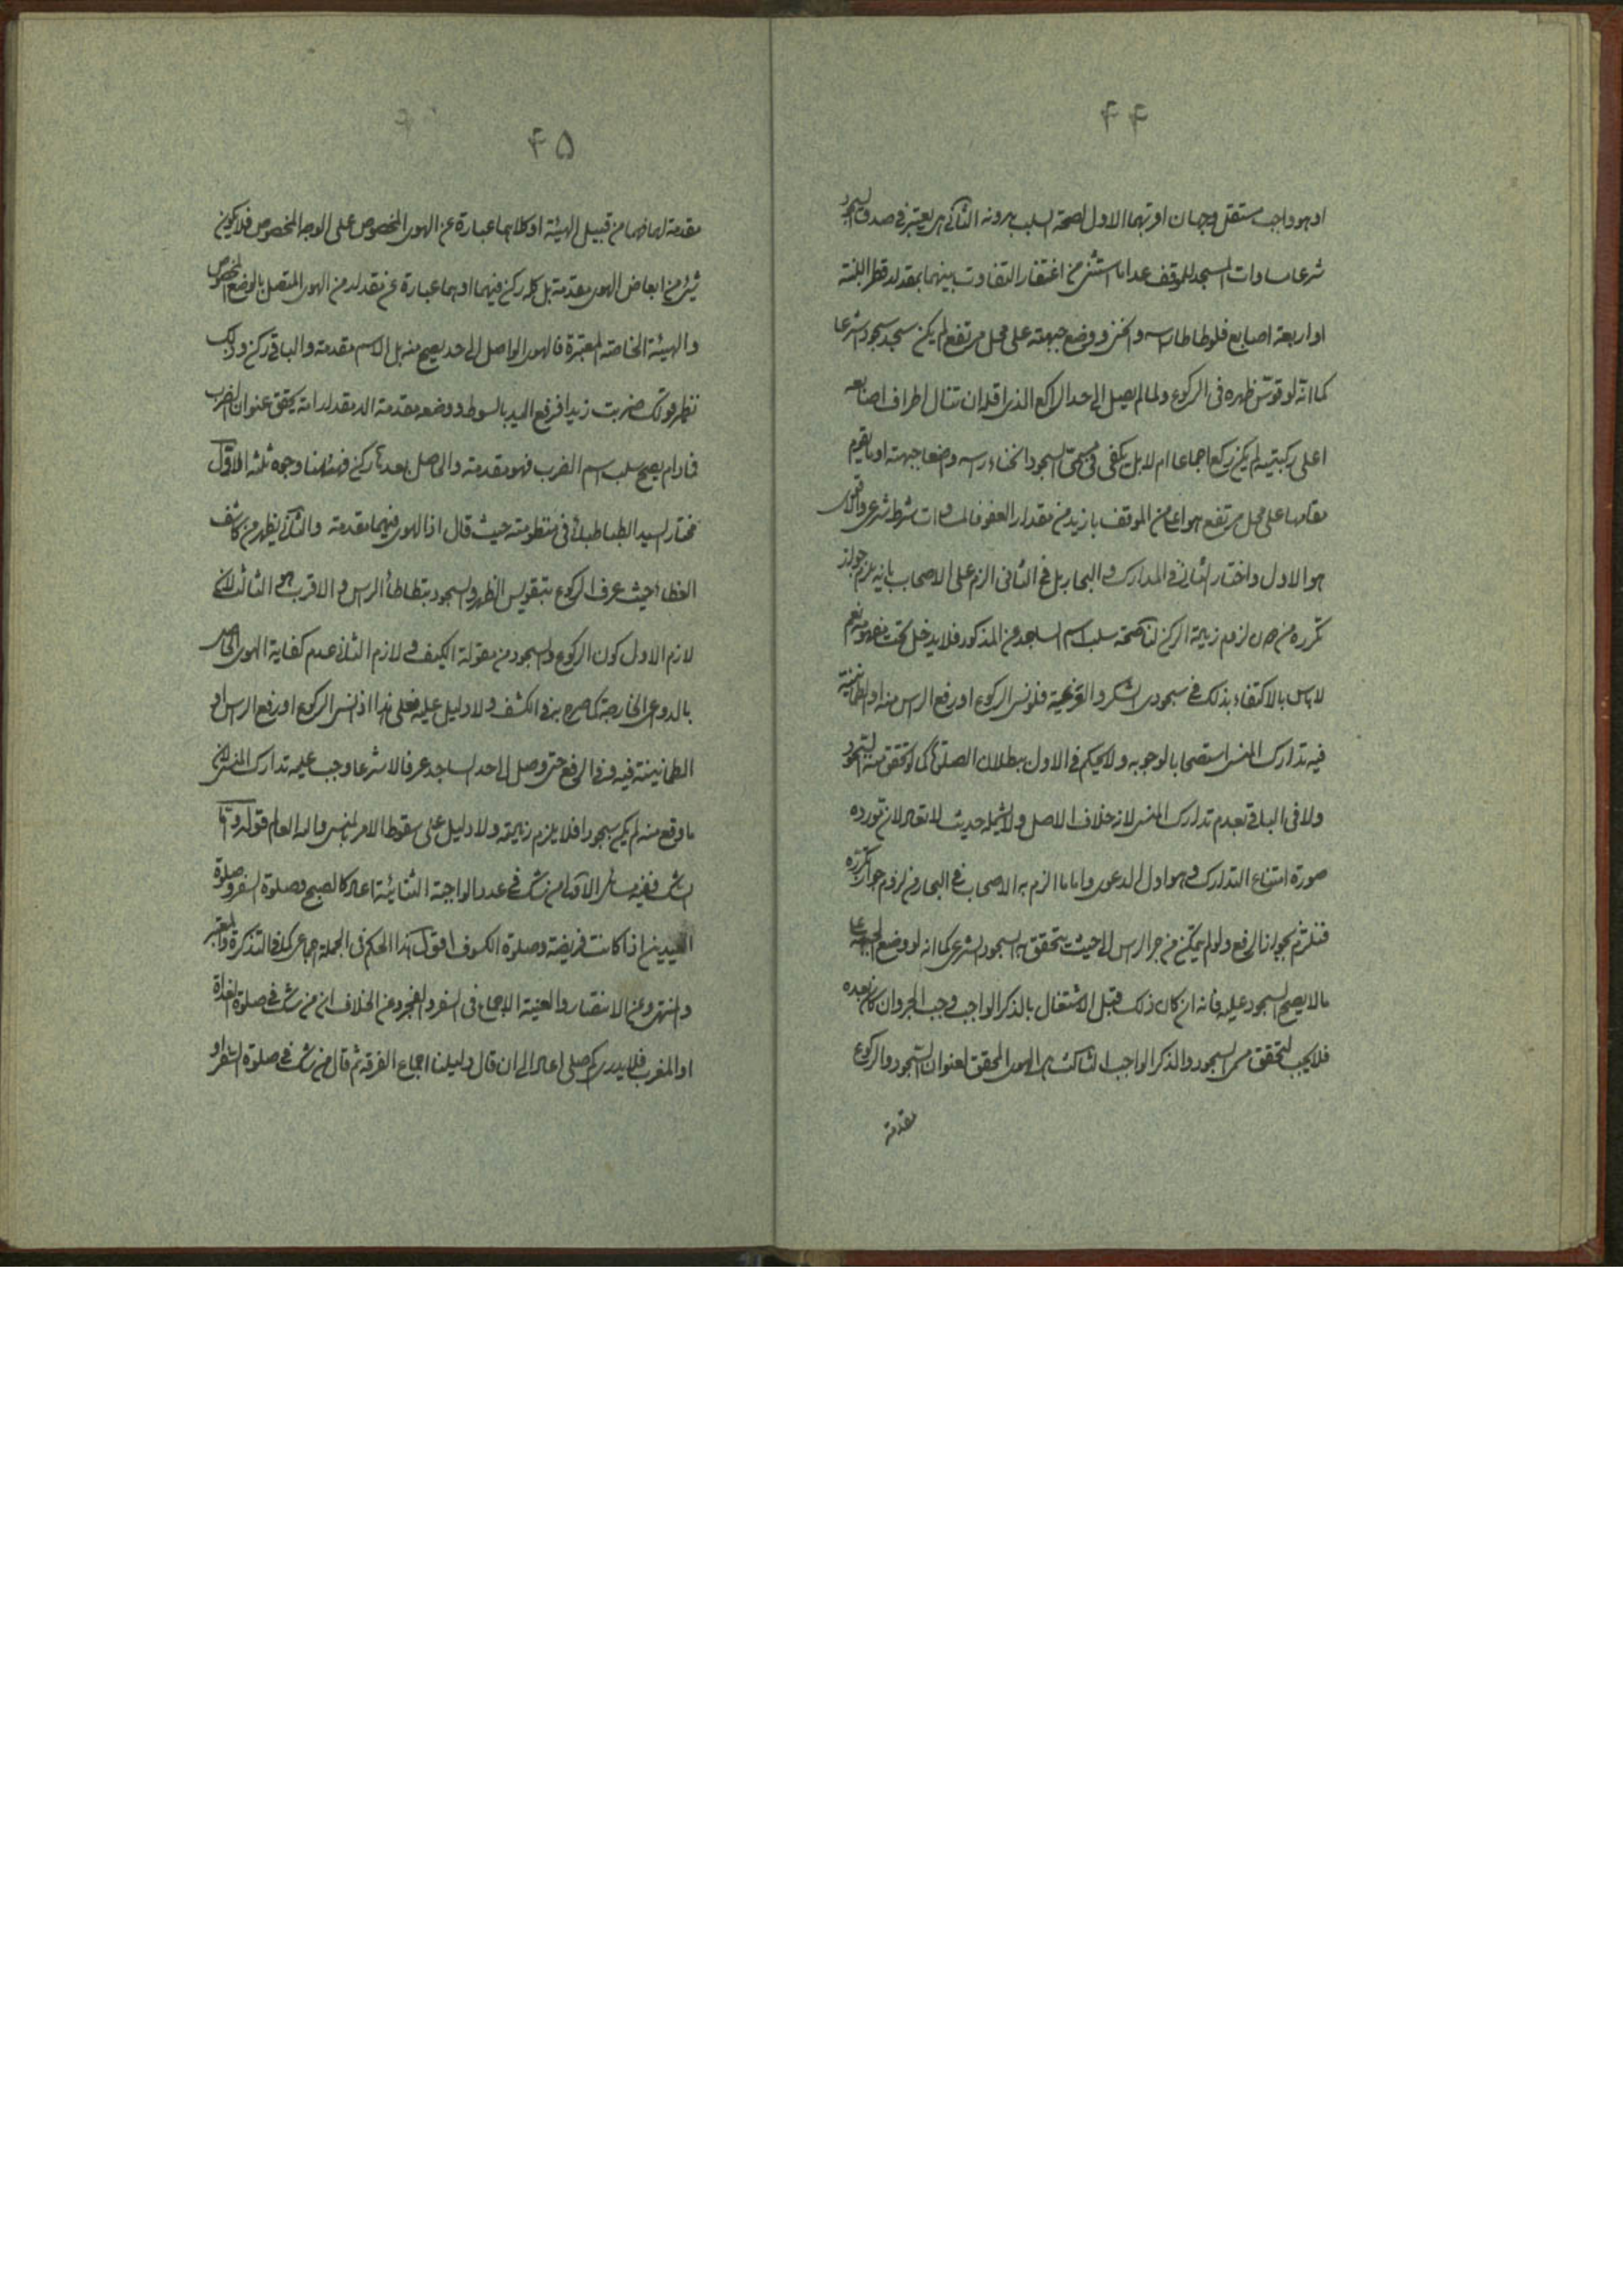 ۴۴
او هو واجب مستقل وجهان اوجههما الاول لصحة السلب بدونه الثانی هل يعتبر فی صدق السجود
شرعا مساوات المسجد للموقف عدا ما استثنی من اغتفار التفاوت بينهما بمقدار قطر اللبنة
او اربعة اصابع فلو طاطا راسه وانحنی ووضع جبهته علی محل مرتفع لم يكن سجد سجودا شرعا
كما انه لو قوّس ظهره فی الركوع ولما لم يصل الی حد الراكع الذی اقله ان تنال اطراف اصابعه
اعلی ركبتيه لم يكن ركع اجماعا ام لا بل يكفی فی مسمّی السجود انحناء راسه وضعا جبهته او ما يقوم
مقامها علی محل مرتفع هو اعلی من الموقف بازيد من مقدار العفو فالمساوات شرط شرعی والاقوی
هو الاول واختار الثانی فی المدارك و البحار بل فی الثانی الزم علی الاصحاب بانه يلزم جواز
تكرره من دون لزوم زيادة الركن لنا صحة سلب اسم الساجد عن المذكور فلا يدخل تحت مفهومه نعم
لا باس بالاكتفاء بذلك فی سجودی الشكر و العزيمة فلو نسی الركوع او رفع الراس منه او الطمانينة
فيه تدارك المنسی استصحابا لوجوبه ولا يحكم فی الاول ببطلان الصلوة كما لو تحقق منه السجود
ولا فی الباقی بعدم تدارك المنسی لانه خلاف الاصل ولا يشمله حديث لا تعاد لان مورده
صورة امتناع التدارك و هو اول الدعوی واما ما الزم به الاصحاب فی البحار من لزوم جواز تكرره
فنلتزم بجوازنا الرفع ولو لم يتمكن من جر الراس الی حيث يتحقق به السجود الشرعی كما انه لو وضع الجبهة علی
ما لا يصح السجود عليه فانه ان كان ذلك قبل الاشتغال بالذكر الواجب وجب الجر وان كان بعده
فلا يجب لتحقق مسمی السجود و الذكر الواجب الثالث هل الهوی المحقق لعنوان السجود و الركوع
مقدمة
۴۵
مقدمة لهما فهما من قبيل الهيئة او كلاهما عبارة عن الهوی المخصوص علی الوجه المخصوص فلا يكون
شیء من ابعاض الهوی مقدمة بل كله ركن فيهما او هما عبارة عن مقدار من الهوی المتصل بالوضع المخصوص
والهيئة الخاصة المعتبرة فالهوی الواصل الی حد يصح منه سلب الاسم مقدمة و الباقی ركن و ذلك
نظير قولك ضربت زيدا فرفع اليد بالسوط و وضعه مقدمة الی مقدار ما به يتحقق عنوان الضرب
فما دام يصح سلب اسم الضرب فهو مقدمة و الحاصل بعدها ركن فههنا وجوه ثلثة الاول
مختار السيد الطباطبائی فی منظومته حيث قال اذ الهوی فيهما مقدمة والثانی يظهر من كاشف
الغطاء حيث عرف الركوع بتقويس الظهر و السجود بتطاطأ الراس و الاقرب هو الثالث لان
لازم الاول كون الركوع و السجود من مقولة الكيف و لازم الثانی عدم كفاية الهوی الحاصل
بالدواعی الخارجة كما صرح به فی الكشف ولا دليل عليه فعلی هذا اذا نسی الركوع او رفع الراس او
الطمانينة فيه و فی الرفع حتی وصل الی حد الساجد عرفا لا شرعا وجب عليه تدارك المنسی لان
ما وقع منه لم يكن سجودا فلا يلزم زيادة ولا دليل علی سقوط الامر بالمنسی و الله العالم قوله و اما
الشك ففيه مسائل الاولی من شك فی عدد الواجبة الثنائية اعاد كالصبح و صلوة السفر و صلوة
العيدين اذا كانت فريضة و صلوة الكسوف اقول هذا الحكم فی الجملة اجماعی كما فی التذكرة و المعتبر
و المنتهی و عن الانتصار و الغنية الاجماع فی السفر و الفجر و عن الخلاف ان من شك فی صلوة الغداة
او المغرب فلا يدری كم صلی اعاد الی ان قال دليلنا اجماع الفرقة ثم قال من شك فی صلوة السفر او